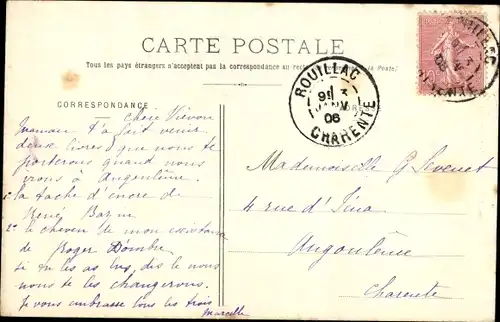 CARTE POSTALE
Tous les pays étrangers n'acceptent pas la correspondance au recto
la Poste)
CORRESPONDANCE
ADRE
ROUILLAC
9E 3
JANV
06
CHARENTE
Chère
maman t'a fait venir
deux livres que nous te
porterons quand nous
irons à Angoulême
1º la tache d'encre de
René Bazin
2º le cheveu de mon existence
de Roger Dombre
si tu les as lus, dis le nous
nous te les changerons.
Je vous embrasse tous les trois
Marcelle
Mademoiselle G
4 rue d'Iéna
Angoulême
Charente